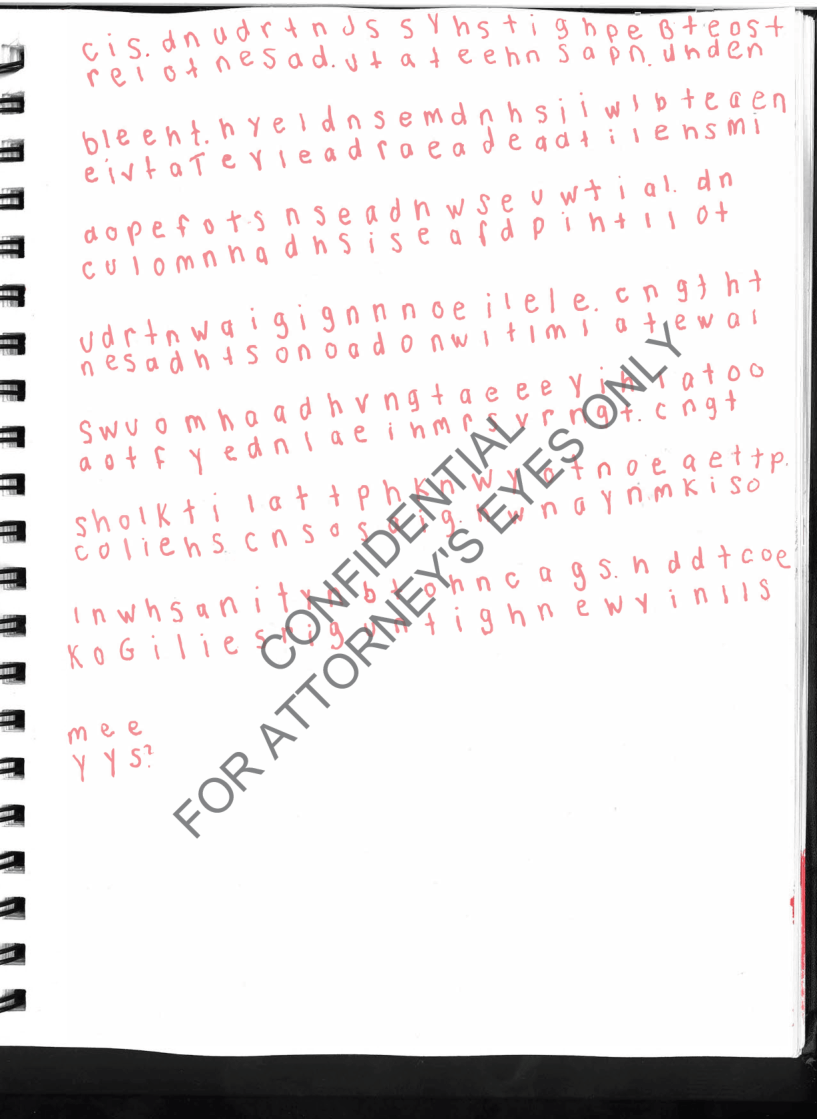 c i s. d n u d r t n J s s Y h s t i g h p e B t e o s t
r e l o t n e s a d. u t a t e e h n s a p n. u n d e n
b l e e h t. h y e l d n s e m d n h s i i w l b t e a e n
e i v t a T e y l e a d r a e a d e a d t i l e n s m i
a o p e f o t s n s e a d n w s e u w t i a l. d n
c u l o m n n a d h s i s e a f d p i h t l l o t
u d r t n w a i g i g n n n o e i l e l e. c n g t h t
n e s a d h t s o n o a d o n w i t l m i a t e w a i
s w u o m h a a d h v n g t a e e e y i h i a t o o
a o t f y e d n l a e i h m r s v r n g t. c n g t
s h o l k t i l a t t p h k n w y a t n o e a e t t p.
c o l i e h s. c n s o s a i g. k w n a y n m k i s o
I n w h s a n i t y n b t o h n c a g s. n d d t c o e
K o G i l i e s r i g u n t i g h n e w y i n l l s
m e e
y y s?
CONFIDENTIAL
FOR ATTORNEY'S EYES ONLY